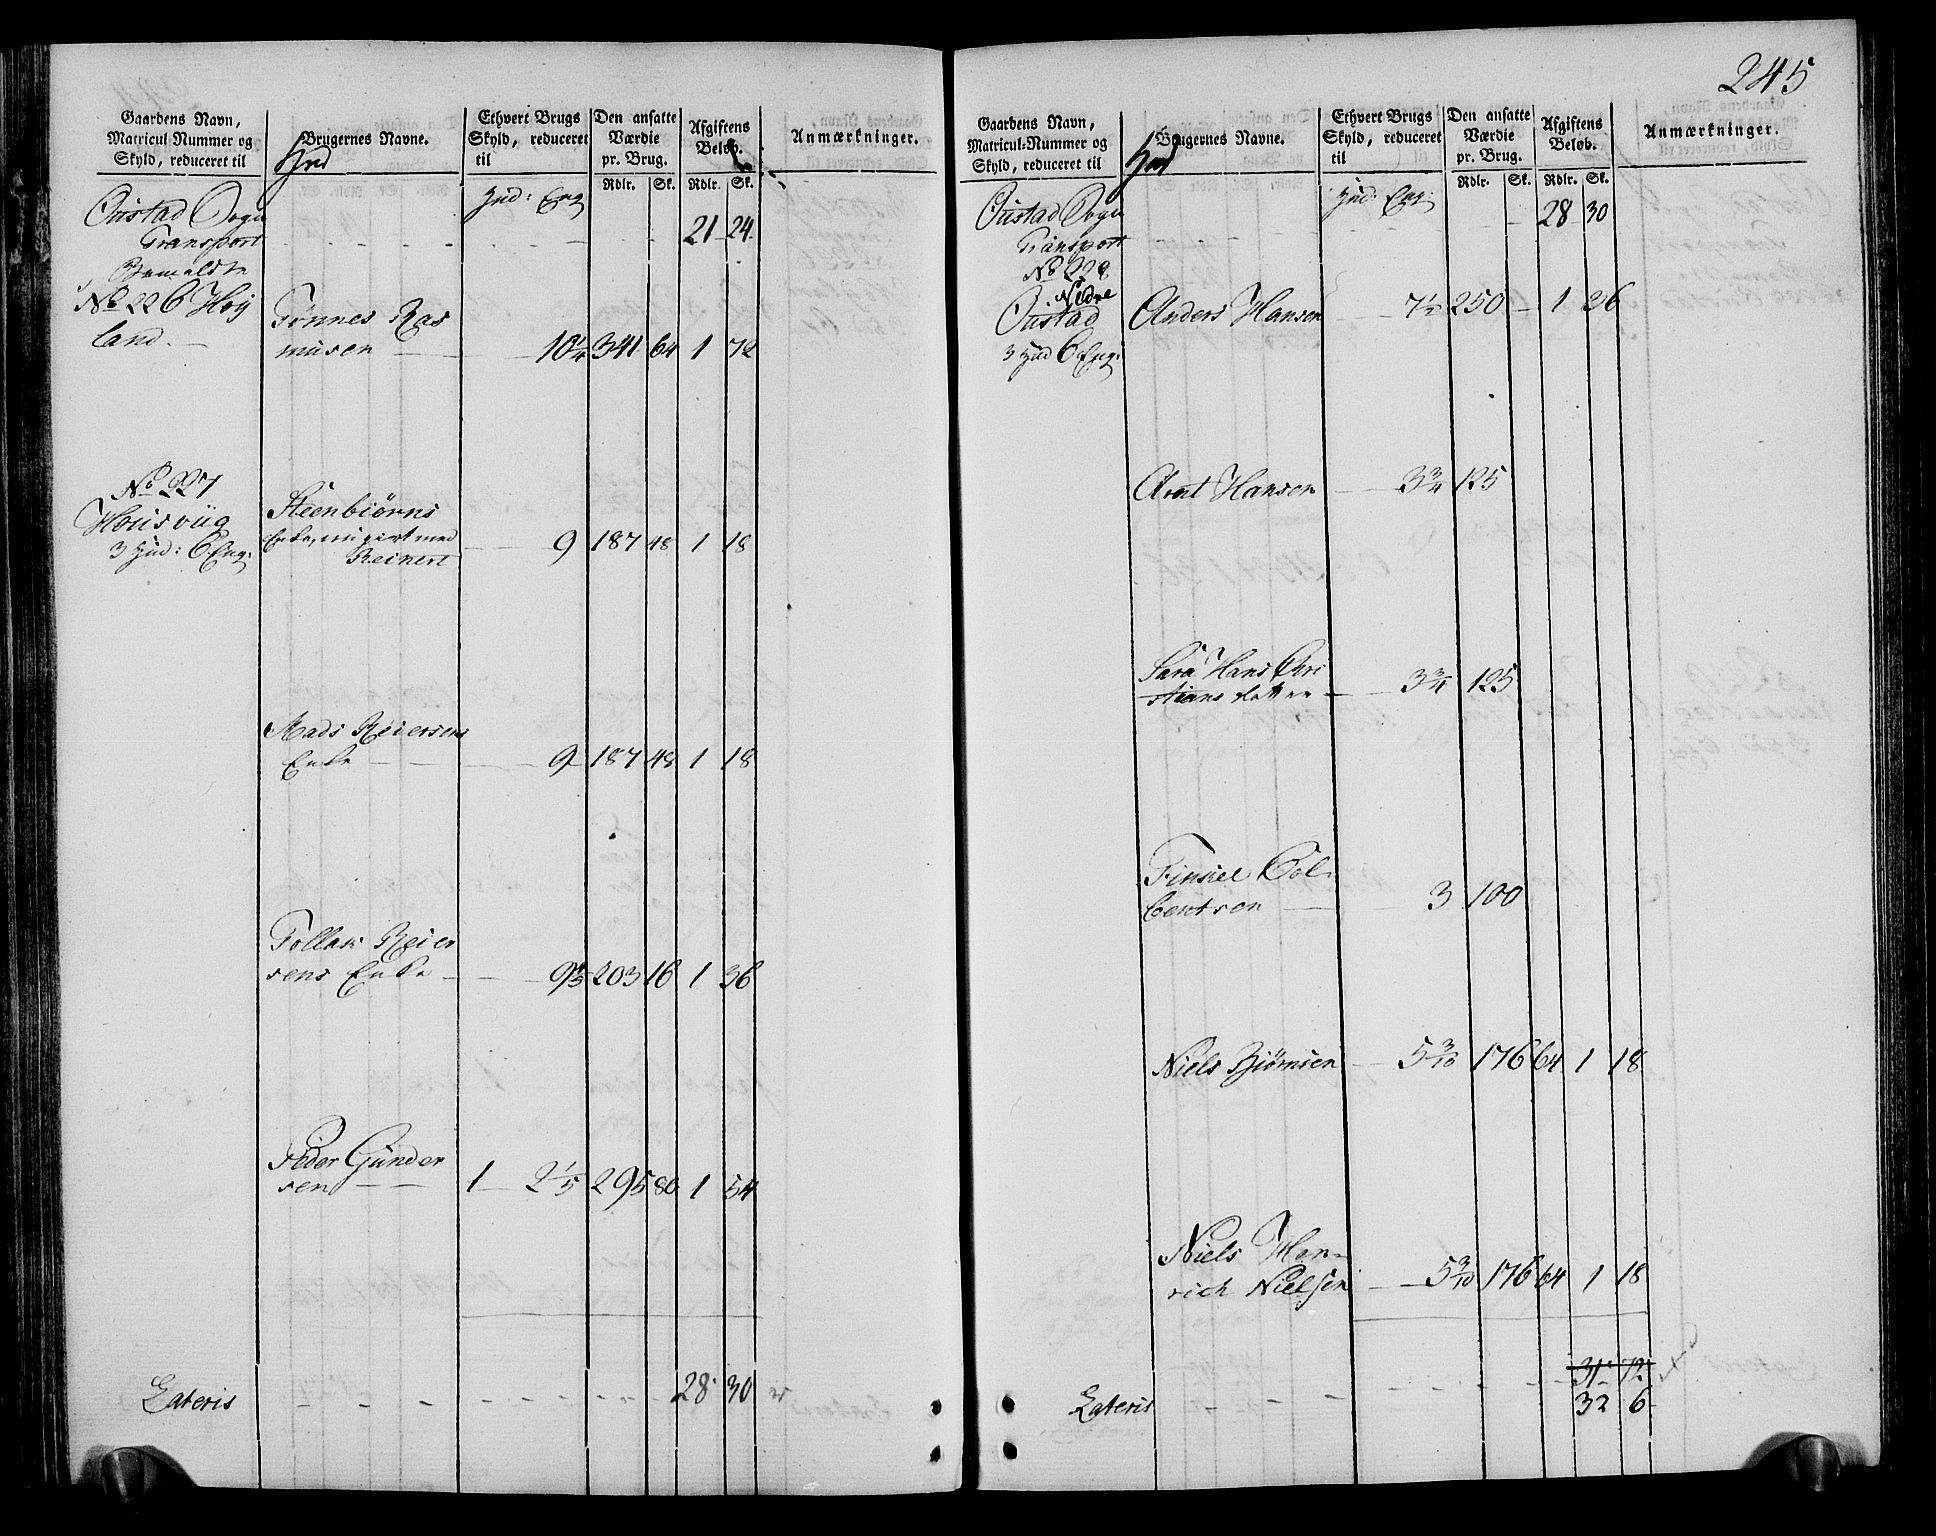 Gaardens Navn,
Matricul-Nummer og
Skyld, reduceret til
Brugernes Navne.
Hud
Ethvert Brugs
Skyld, reduceret
til
Den ansatte
Værdie
pr. Brug.
Rdlr. Sk.
Afgiftens
Beløb.
Rdlr. Sk.
Anmærkninger.
Hud: Eng
Oustad Sogn
Transport 21 24
Bemeldte
No 226 Høy
land.
Tønnes Ras
musen 10 1/4 341 64 1 72
No 227
Housviig
3 Hud: 6 Eng:
Steenbiørns
Enke, nu givt med
Reinert 9 187 48 1 18
Mads Reiersens
Enke 9 187 48 1 18
Tollak Reier
sens Enke 9 203 16 1 36
Peder Gunder
sen 1 2 1/5 295 80 1 54
Lateris 28 30
245
Gaardens Navn,
Matricul-Nummer og
Skyld, reduceret til
Brugernes Navne.
Hud
Ethvert Brugs
Skyld, reduceret
til
Den ansatte
Værdie
pr. Brug.
Rdlr. Sk.
Afgiftens
Beløb.
Rdlr. Sk.
Anmærkninger.
Hud: Eng
Oustad Sogn
Transport 28 30
No 228
Nedre
Oustad
3 Hud 6 Eng:
Anders Hansen 7 1/2 250 1 36
Arnt Hansen 3 3/4 125
Sara Hans Chri
stians datter 3 3/4 125
Tinkel Col
bentsen 3 100
Niels Biørnsen 5 3/10 176 64 1 18
Niels Hen
rich Nielsen 5 3/10 176 64 1 18
31 72
Lateris 32 6